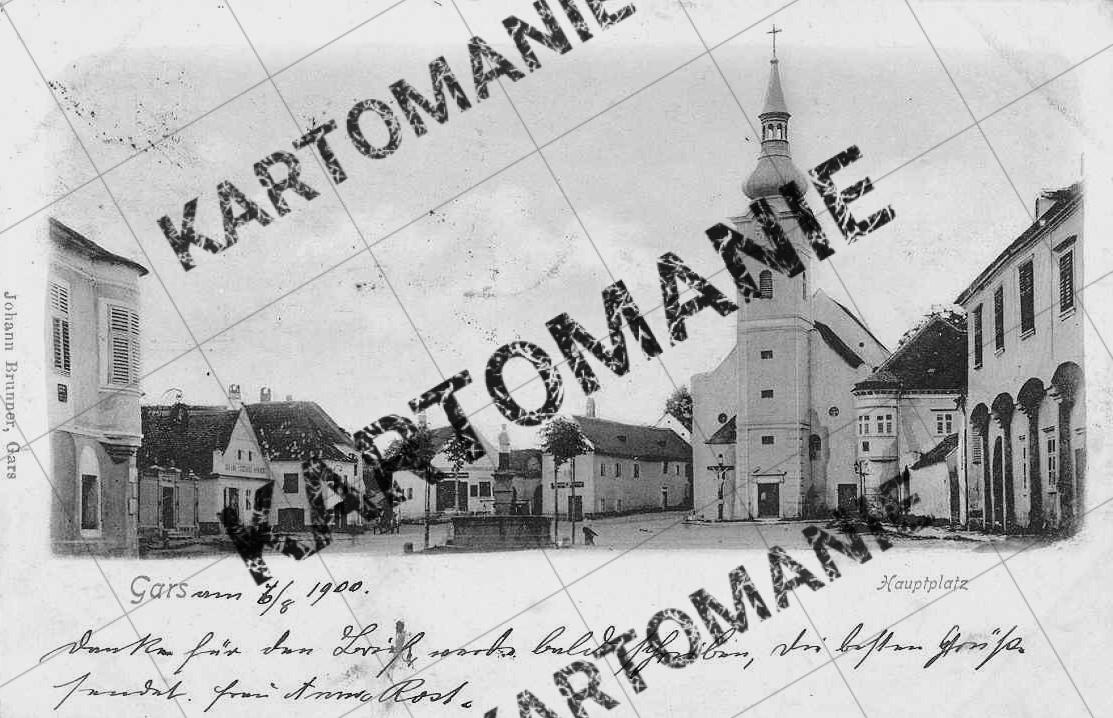 KARTOMANIE
KARTOMANIE
KARTOMANIE
KARTOMANIE
Johann Brunner, Gars
Gars am 6/8 1900.
Hauptplatz
Danke für den Brief, werde bald schreiben, die besten Grüße
sendet frau Anna Rost.